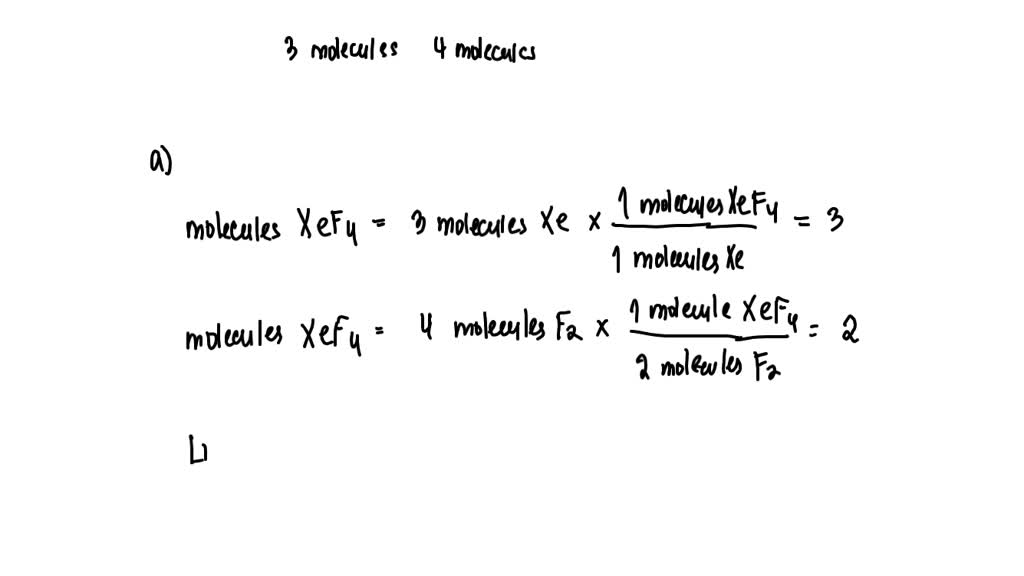 3 molecules 4 molecules
a)
molecules XeF₄ = 3 molecules Xe x 1 molecules XeF₄ / 1 molecules Xe = 3
molecules XeF₄ = 4 molecules F₂ x 1 molecule XeF₄ / 2 molecules F₂ = 2